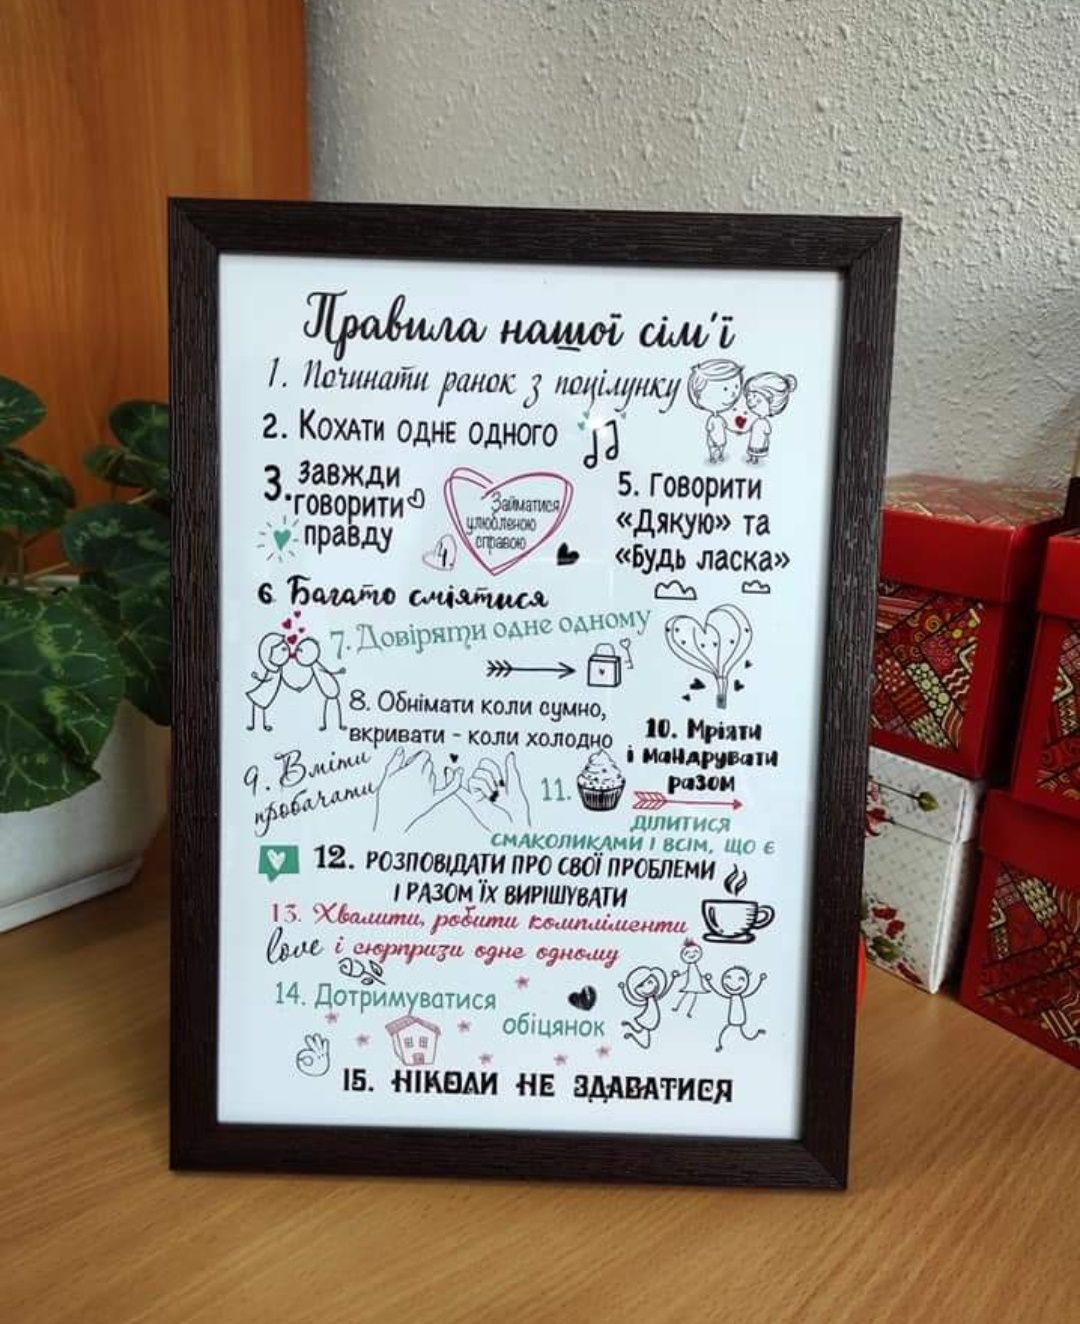 Правила нашої сім'ї
1. Починати ранок з поцілунку
2. Кохати одне одного
3. Завжди
говорити
правду
4
Займатися
улюбленою
справою
5. Говорити
«Дякую» та
«Будь ласка»
6. Багато сміятися
7. Довіряти одне одному
8. Обнімати коли сумно,
вкривати - коли холодно
9. Вміти
пробачати
10. Мріяти
і мандрувати
разом
11.
ділитися
смаколиками і всім, що є
12. РОЗПОВІДАТИ ПРО СВОЇ ПРОБЛЕМИ
І РАЗОМ ЇХ ВИРІШУВАТИ
13. Хвалити, робити компліменти
love і сюрпризи одне одному
14. Дотримуватися
обіцянок
15. НІКОЛИ НЕ ЗДАВАТИСЯ